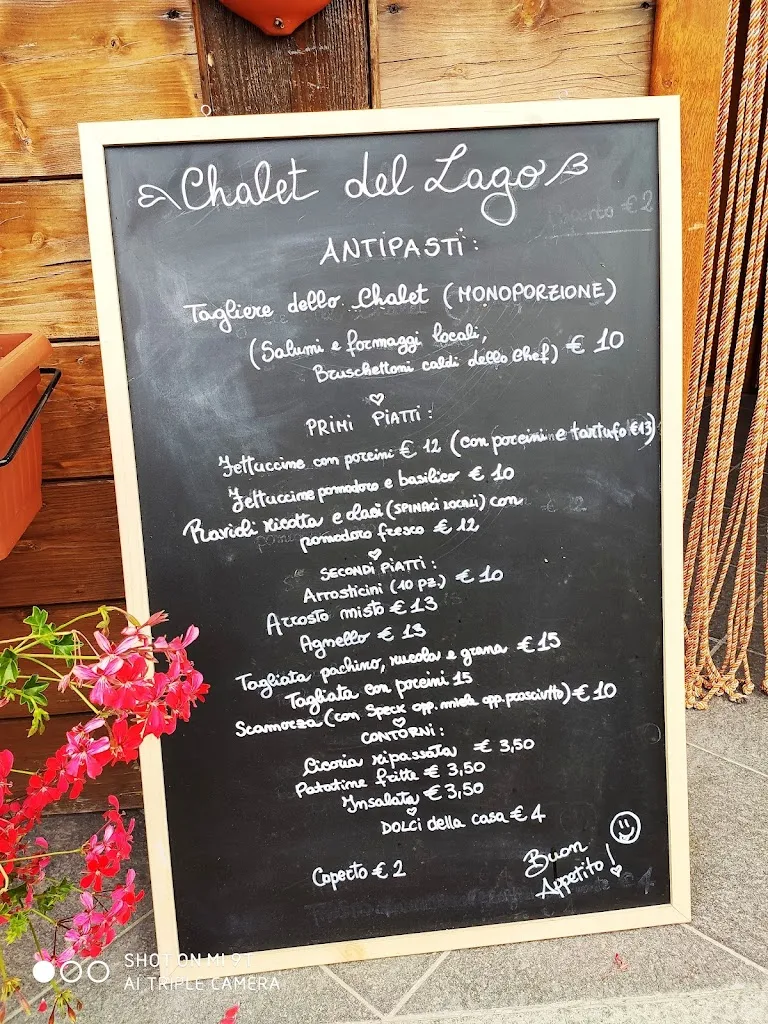 Chalet del Lago
Coperto € 2
ANTIPASTI:
Tagliere dello Chalet (MONOPORZIONE)
(Salumi e formaggi locali,
Bruschettoni caldi dello Chef) € 10
PRIMI PIATTI:
Fettuccine con porcini € 12 (con porcini e tartufo €13)
Fettuccine pomodoro e basilico € 10
Ravioli ricotta e olaci (SPINACI LOCALI) con
pomodoro fresco € 12
SECONDI PIATTI:
Arrosticini (10 PZ.) € 10
Arrosto misto € 13
Agnello € 13
Tagliata pachino, rucola e grana € 15
Tagliata con porcini 15
Scamorza (con Speck opp. miele opp. prosciutto) € 10
CONTORNI:
Cicoria ripassata € 3,50
Patatine fritte € 3,50
Insalata € 3,50
DOLCI della casa € 4
Coperto € 2
Buon
Appetito!
SHOT ON MI 9T
AI TRIPLE CAMERA